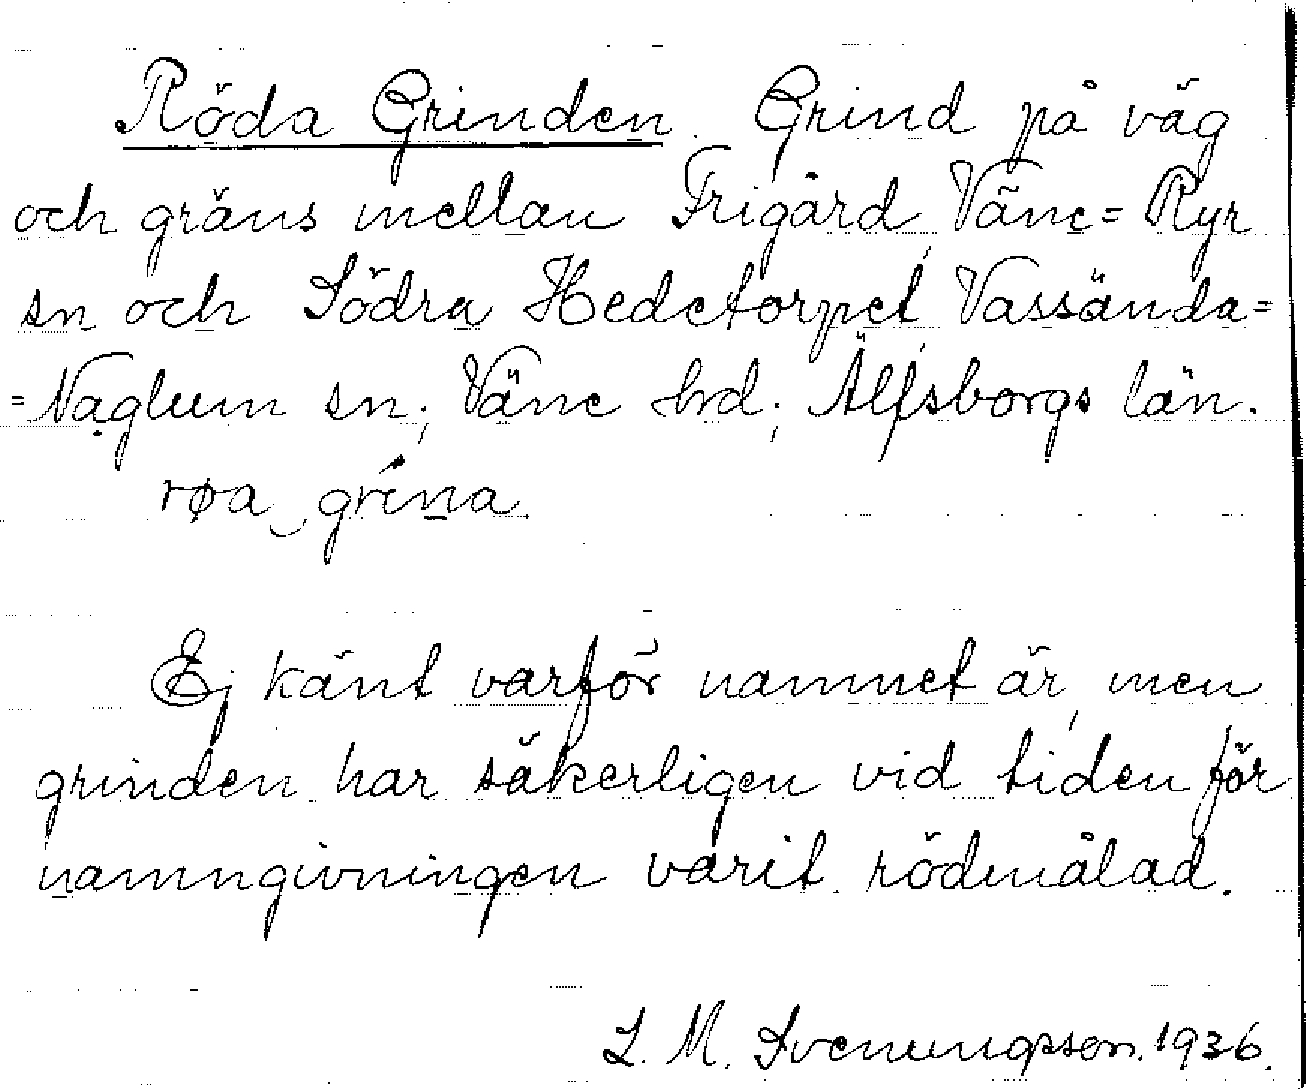 Röda Grinden. Grind på väg
och gräns mellan Frigård, Väne=Ryr
sn och Södra Hedetorpet, Vassända=
=Naglum sn; Väne hrd; Älfsborgs län.
røa grína.
Ej känt varför namnet är, men
grinden har säkerligen vid tiden för
namngivningen varit rödmålad.
L. M. Svenungsson. 1936.